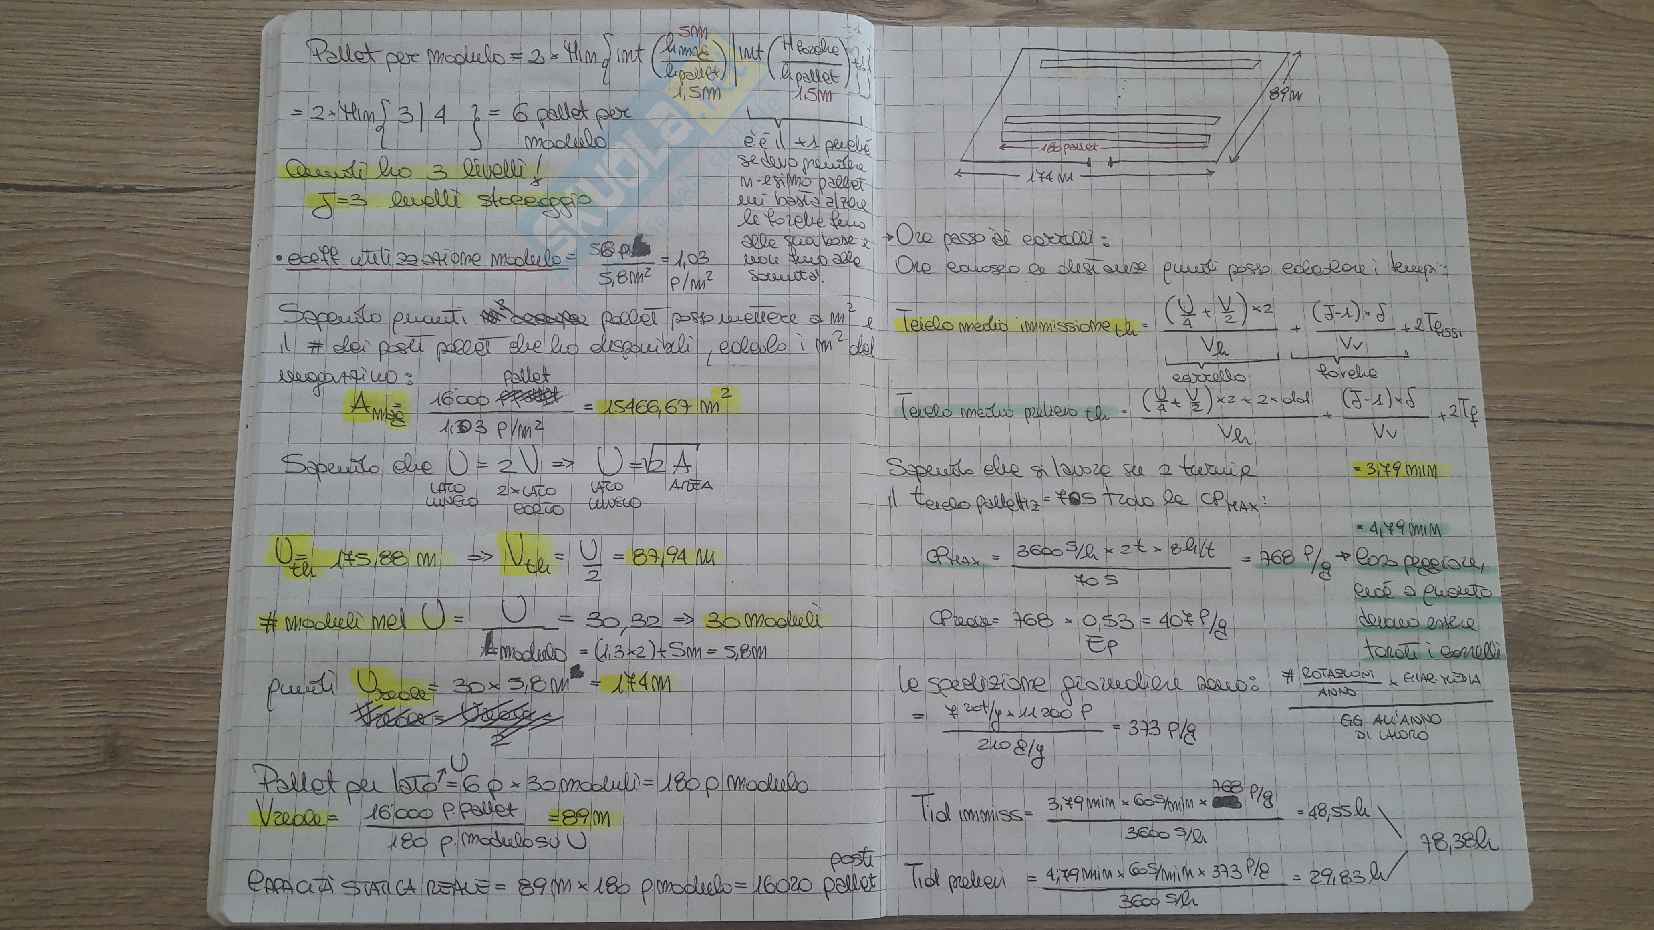 Pallet per modulo = 2 × Min { int ( 5m h mag / h pallet 1,5m ) | int ( H forche / h pallet 1,5m ) +1 }
= 2 × Min { 3 | 4 } = 6 pallet per modulo
Quindi ho 3 livelli!
J=3 livelli stoccaggio
c'è il +1 perché
se devo prendere
n-esimo pallet
mi basta alzare
le forche fino
alla sua base e
non fino alla
sommità!
• coeff utilizzazione modulo = 6 p / 5,8m² = 1,03 p/m²
Sapendo quanti pallet posso mettere a m² e
il # dei posti pallet che ho disponibili, calcolo i m² del
magazzino:
A mag = 16000 pallet / 1,03 p/m² = 15466,67 m²
Sapendo che U = 2V => U = √2A
LATO LUNGO 2×LATO CORTO LATO LUNGO AREA
U th = 175,88 m => V th = U/2 = 87,94 m
# moduli nel U = U / A modulo = 30,32 => 30 moduli
= (1,3×2) + 3m = 5,8m
quindi U reale = 30 × 5,8m = 174m
Pallet per lato U = 6 p × 30 moduli = 180 p/modulo
V reale = 16000 p. pallet / 180 p/modulo su U = 89m
CAPACITÀ STATICA REALE = 89m × 180 p/modulo = 16020 posti pallet
89m
180 pallet
174m
→ Ora passo ai carrelli:
Ora conosco le distanze quindi posso calcolare i tempi:
Tciclo medio immissione th = (U/4 + V/2) × 2 / Vh + (J-1)·δ / Vv + 2Tfissi
carrello forche
Tciclo medio prelievo th = (U/4 + V/2) × 2 × 2 × dol / Vh + (J-1)×δ / Vv + 2Tf
Sapendo che si lavora su 2 turni e = 3,79 min
il tciclo pallettiz = 70s trovo la CP MAX:
= 4,79 min
CP MAX = 3600 s/h × 2t × 8h/t / 70 s = 768 P/g → caso peggiore,
cioè a quanto
devono essere
tarati i carrelli
CP reale = 768 × 0,53 = 407 P/g
Ep
Le spedizione giornaliere sono: # ROTAZIONI / ANNO × GIAC MEDIA / GG ALL'ANNO DI LAVORO
= 7 rot/y × 11200 P / 210 g/y = 373 p/g
Ttot immiss = 3,79 min × 60 s/min × 768 P/g / 3600 s/h = 48,55h
78,38h
Ttot prelievi = 4,79 min × 60 s/min × 373 P/g / 3600 s/h = 29,83 h